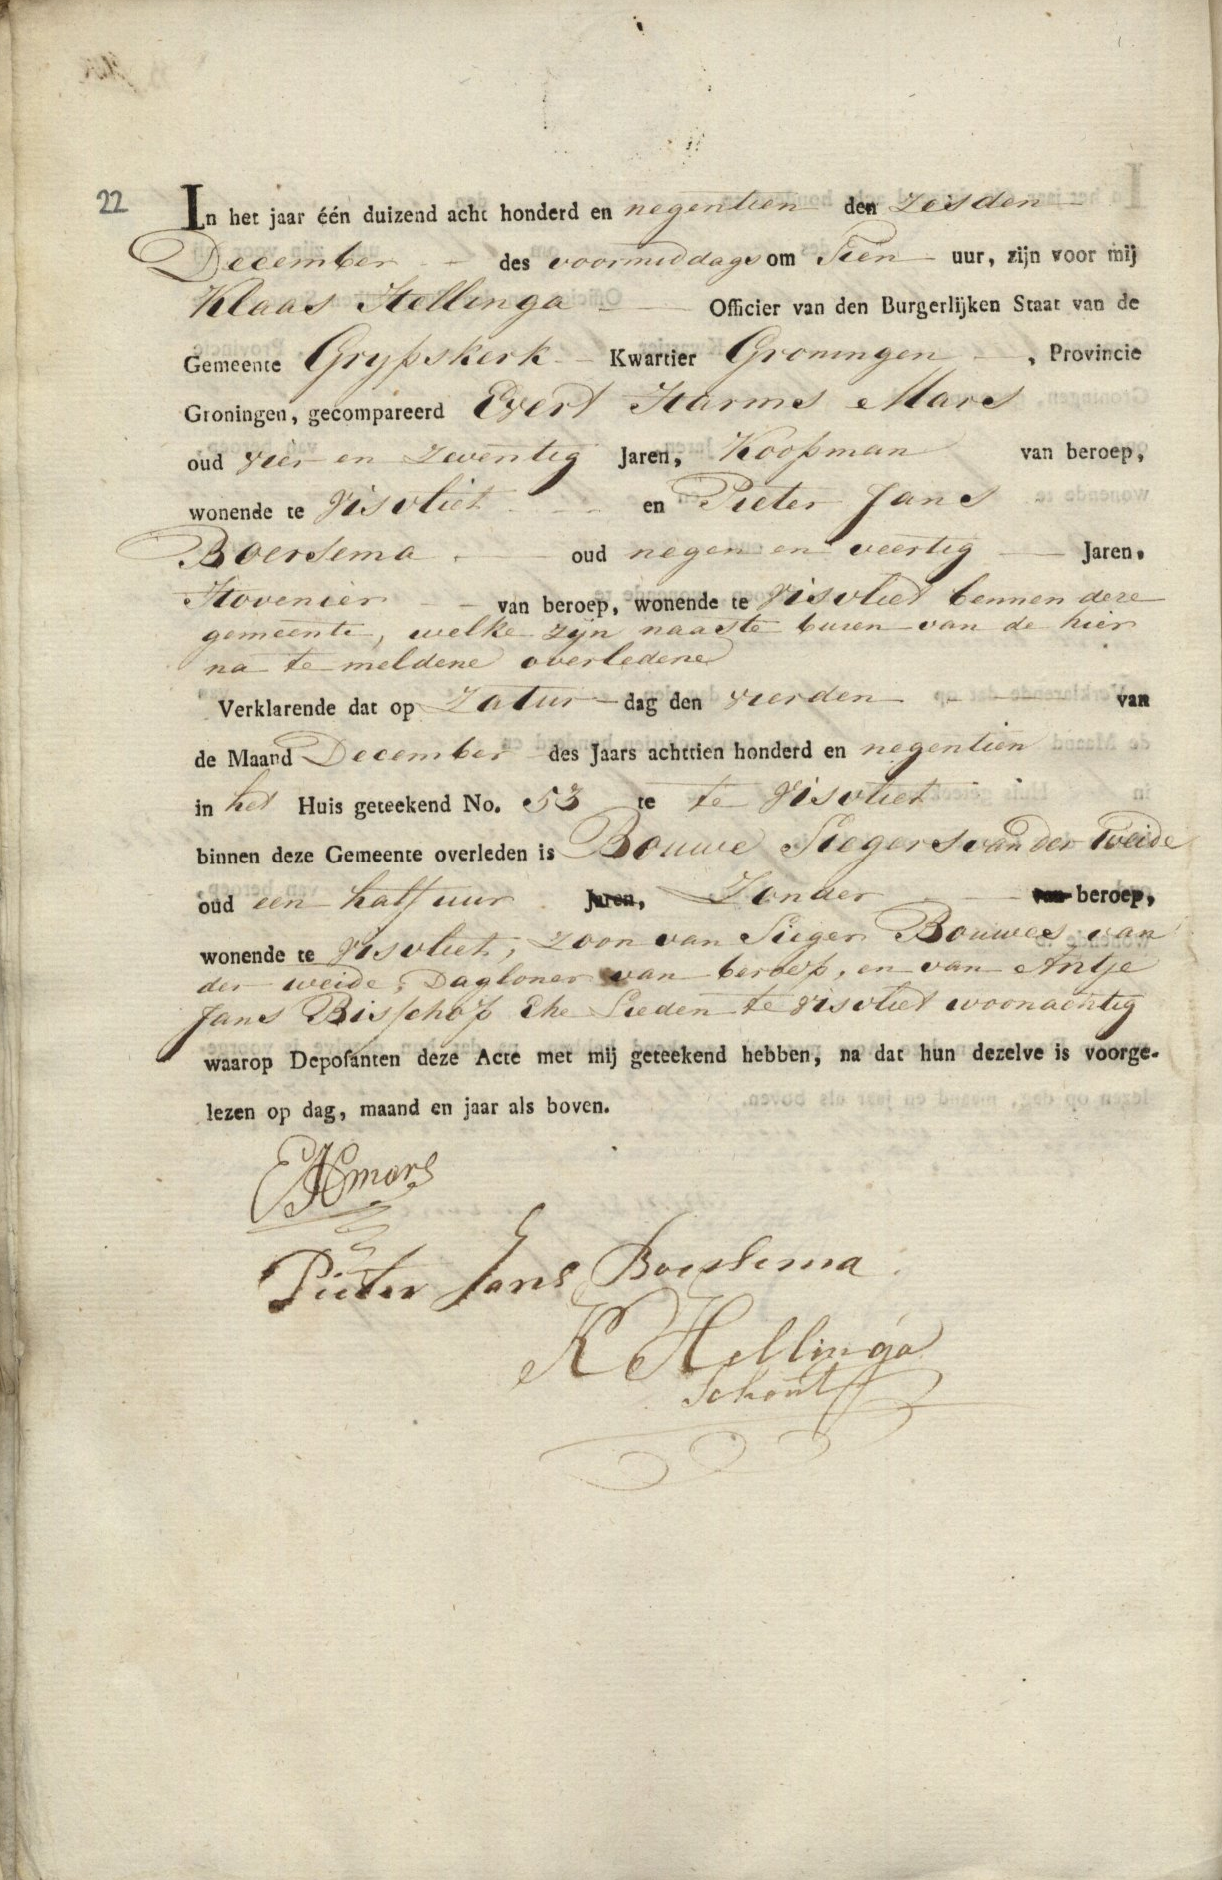 22
In het jaar één duizend acht honderd en negentien den zesden
December des voormiddags om Tien uur, zijn voor mij
Klaas Hellinga Officier van den Burgerlijken Staat van de
Gemeente Grypskerk Kwartier Groningen, Provincie
Groningen, gecompareerd Evert Harms Mars
oud vier en zeventig Jaren, Koopman van beroep,
wonende te Visvliet en Pieter Jans
Boersema oud negen en veertig Jaren.
Hovenier van beroep, wonende te Visvliet bennen deze
gemeente, welke zyn naaste buren van de hier
na te meldene overledene
Verklarende dat op Zatur dag den vierden van
de Maand December des Jaars achttien honderd en negentien
in het Huis geteekend No. 53 te te Visvliet
binnen deze Gemeente overleden is Bouwe Siegers van der Weide
oud een half uur Jaren, Zonder van beroep,
wonende te Visvliet, zoon van Sieger Bouwes van
der weide, Dagloner van beroep, en van Antje
Jans Bisschop Ehe Lieden te Visvliet woonachtig
waarop Deposanten deze Acte met mij geteekend hebben, na dat hun dezelve is voorge-
lezen op dag, maand en jaar als boven.
EHmars
Pieter Jans Boersema
K Hellinga
Schout